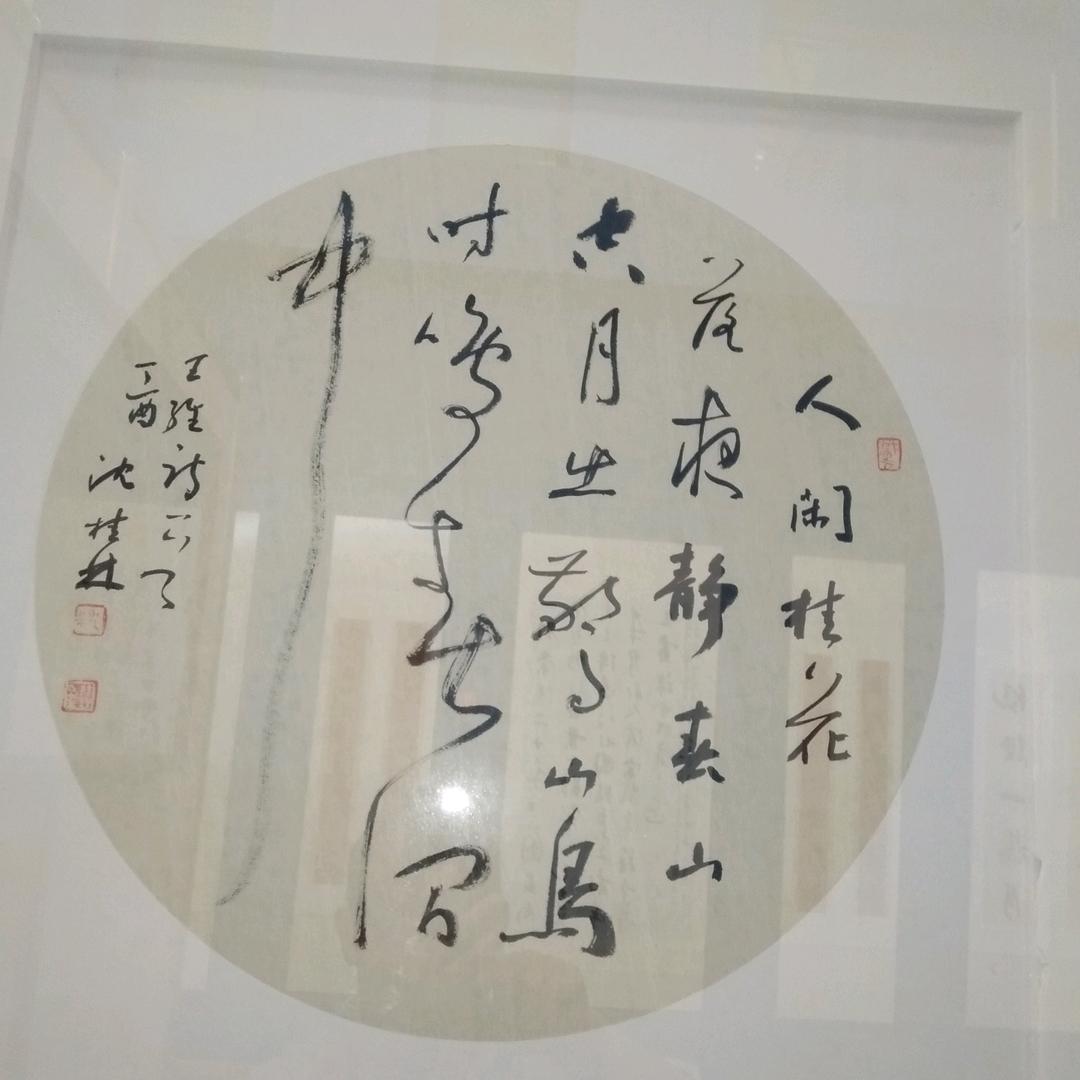 人闲桂花
落夜静春山
空月出惊山鸟
时鸣春涧
中
王维诗一首
丁酉沈桂林